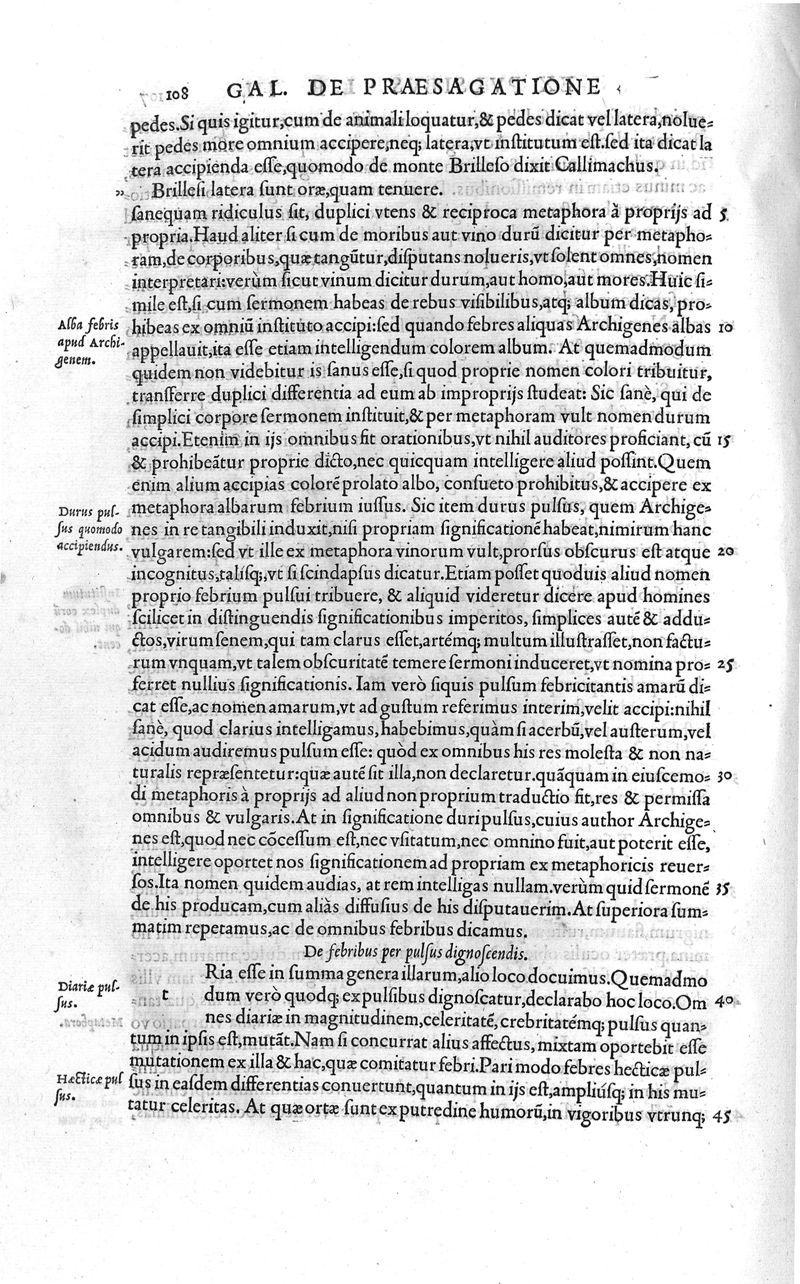 108 GAL. DE PRAESAGATIONE
pedes.Si quis igitur,cum de animali loquatur,& pedes dicat vel latera,nolue=
rit pedes more omnium accipere,neq; latera,vt inſtitutum eſt.ſed ita dicat la
tera accipienda eſſe,quomodo de monte Brilleſo dixit Callimachus.
„ Brilleſi latera ſunt oræ,quam tenuere.
ſanequam ridiculus ſit, duplici vtens & reciproca metaphora à proprijs ad 5
propria.Haud aliter ſi cum de moribus aut vino durũ dicitur per metapho=
ram,de corporibus,quæ tangũtur,diſputans nolueris,vt ſolent omnes,nomen
interpretari:verùm ſicut vinum dicitur durum,aut homo,aut mores.Huic ſi=
mile eſt,ſi cum ſermonem habeas de rebus viſibilibus,atq; album dicas, pro=
Alba febris
apud Archi-
genem.
hibeas ex omniũ inſtituto accipi:ſed quando febres aliquas Archigenes albas 10
appellauit,ita eſſe etiam intelligendum colorem album. At quemadmodum
quidem non videbitur is ſanus eſſe,ſi quod proprie nomen colori tribuitur,
transferre duplici differentia ad eum ab improprijs ſtudeat: Sic ſanè, qui de
ſimplici corpore ſermonem inſtituit,& per metaphoram vult nomen durum
accipi.Etenim in ijs omnibus fit orationibus,vt nihil auditores proficiant, cũ 15
& prohibeãtur proprie dicto,nec quicquam intelligere aliud poſſint.Quem
enim alium accipias colorẽ prolato albo, conſueto prohibitus,& accipere ex
Durus pul-
ſus quomodo
accipiendus.
metaphora albarum febrium iuſſus. Sic item durus pulſus, quem Archige=
nes in re tangibili induxit,niſi propriam ſignificationẽ habeat,nimirum hanc
vulgarem:ſed vt ille ex metaphora vinorum vult,prorſus obſcurus eſt atque 20
incognitus,talisq;,vt ſi ſcindapſus dicatur.Etiam poſſet quoduis aliud nomen
proprio febrium pulſui tribuere, & aliquid videretur dicere apud homines
ſcilicet in diſtinguendis ſignificationibus imperitos, ſimplices autẽ & addu=
ctos,virum ſenem,qui tam clarus eſſet,artémq; multum illuſtraſſet,non factu=
rum vnquam,vt talem obſcuritatẽ temere ſermoni induceret,vt nomina pro= 25
ferret nullius ſignificationis. Iam verò ſiquis pulſum febricitantis amarũ di=
cat eſſe,ac nomen amarum,vt ad guſtum referimus interim,velit accipi:nihil
ſanè, quod clarius intelligamus,habebimus,quàm ſi acerbũ,vel auſterum,vel
acidum audiremus pulſum eſſe: quòd ex omnibus his res moleſta & non na=
turalis repræſentetur:quæ autẽ ſit illa,non declaretur.quãquam in eiuſcemo= 30
di metaphoris à proprijs ad aliud non proprium traductio fit,res & permiſſa
omnibus & vulgaris.At in ſignificatione duri pulſus,cuius author Archige=
nes eſt,quod nec cõceſſum eſt,nec vſitatum,nec omnino fuit,aut poterit eſſe,
intelligere oportet nos ſignificationem ad propriam ex metaphoricis reuer=
ſos.Ita nomen quidem audias, at rem intelligas nullam.verùm quid ſermonẽ 35
de his producam,cum aliàs diffuſius de his diſputauerim.At ſuperiora ſum=
matim repetamus,ac de omnibus febribus dicamus.
De febribus per pulſus dignoſcendis.
Diariæ pul-
ſus.
t Ria eſſe in ſumma genera illarum,alio loco docuimus.Quemadmo
dum verò quodq; ex pulſibus dignoſcatur,declarabo hoc loco.Om 40
nes diariæ in magnitudinem,celeritatẽ,crebritatémq; pulſus quan=
tum in ipſis eſt,mutãt.Nam ſi concurrat alius affectus, mixtam oportebit eſſe
mutationem ex illa & hac,quæ comitatur febri.Pari modo febres hecticæ pul=
Hæcticæ pul
ſus.
ſus in eaſdem differentias conuertunt,quantum in ijs eſt,ampliúſq; in his mu=
tatur celeritas. At quæ ortæ ſunt ex putredine humorũ,in vigoribus vtrunq; 45